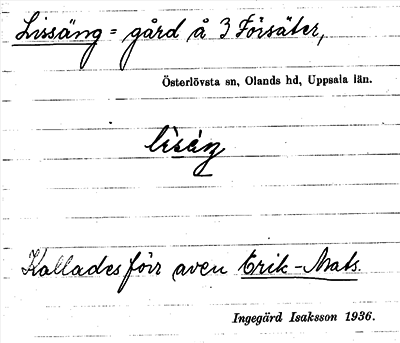 Lissäng = gård å 3 Försäter,
Österlövsta sn, Olands hd, Uppsala län.
lìsèŋ
Kallades förr även Erik-Mats.
Ingegärd Isaksson 1936.